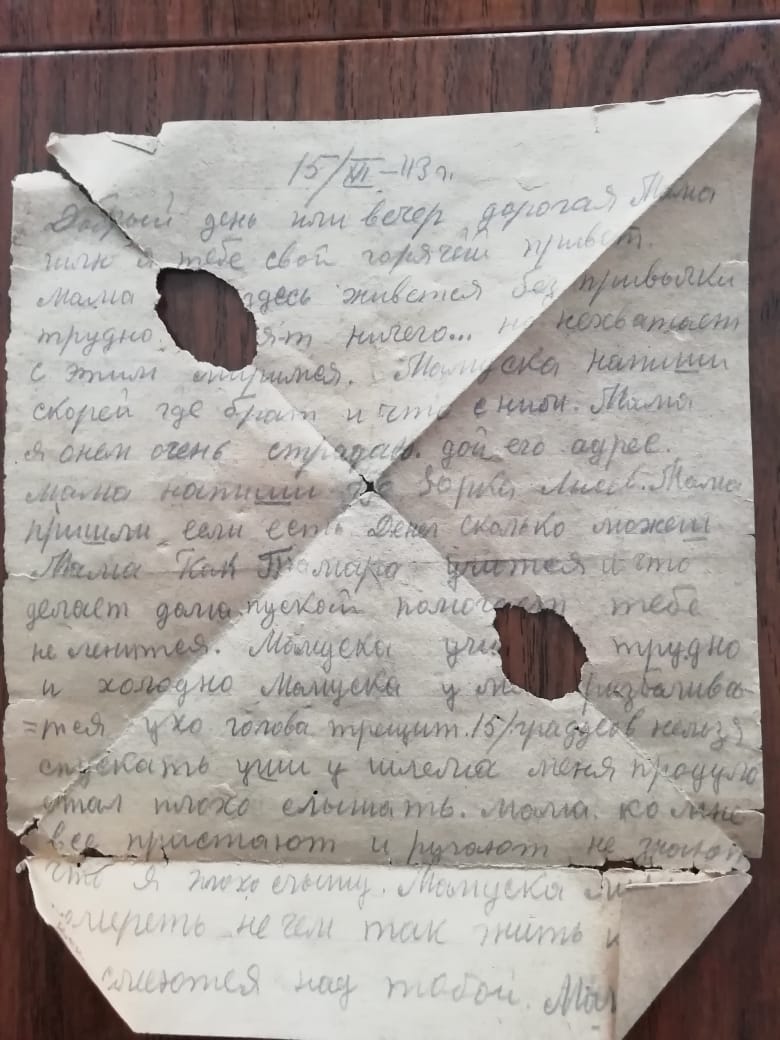 15/XII–43 г.
Добрый день или вечер дорогая Мама
шлю я тебе свой горячей привет.
Мама здесь живется без привычки
трудно. ят ничего... но нехватает
с этим миримся. Мамуска напиши
скорей где брат и что с ним. Мама
я онем очень страдаю. дой его адрес.
мама напиши
пришли если есть Денег сколько можеш
Мама Как Тамара учится и что
делает дома пуской помогает тебе
не ленится. Мамуска учи трудно
и холодно Мамуска у ме разбалива-
=тся ухо голова трещит. 15/градусов нельзя
спускать уши у шлема меня продуло
стал плохо слышать. мама. ко мне
все пристают и ругают не знают
что я плохо слышу. Мамуска
омереть не чем так жить и
смеются над тобой. Мам